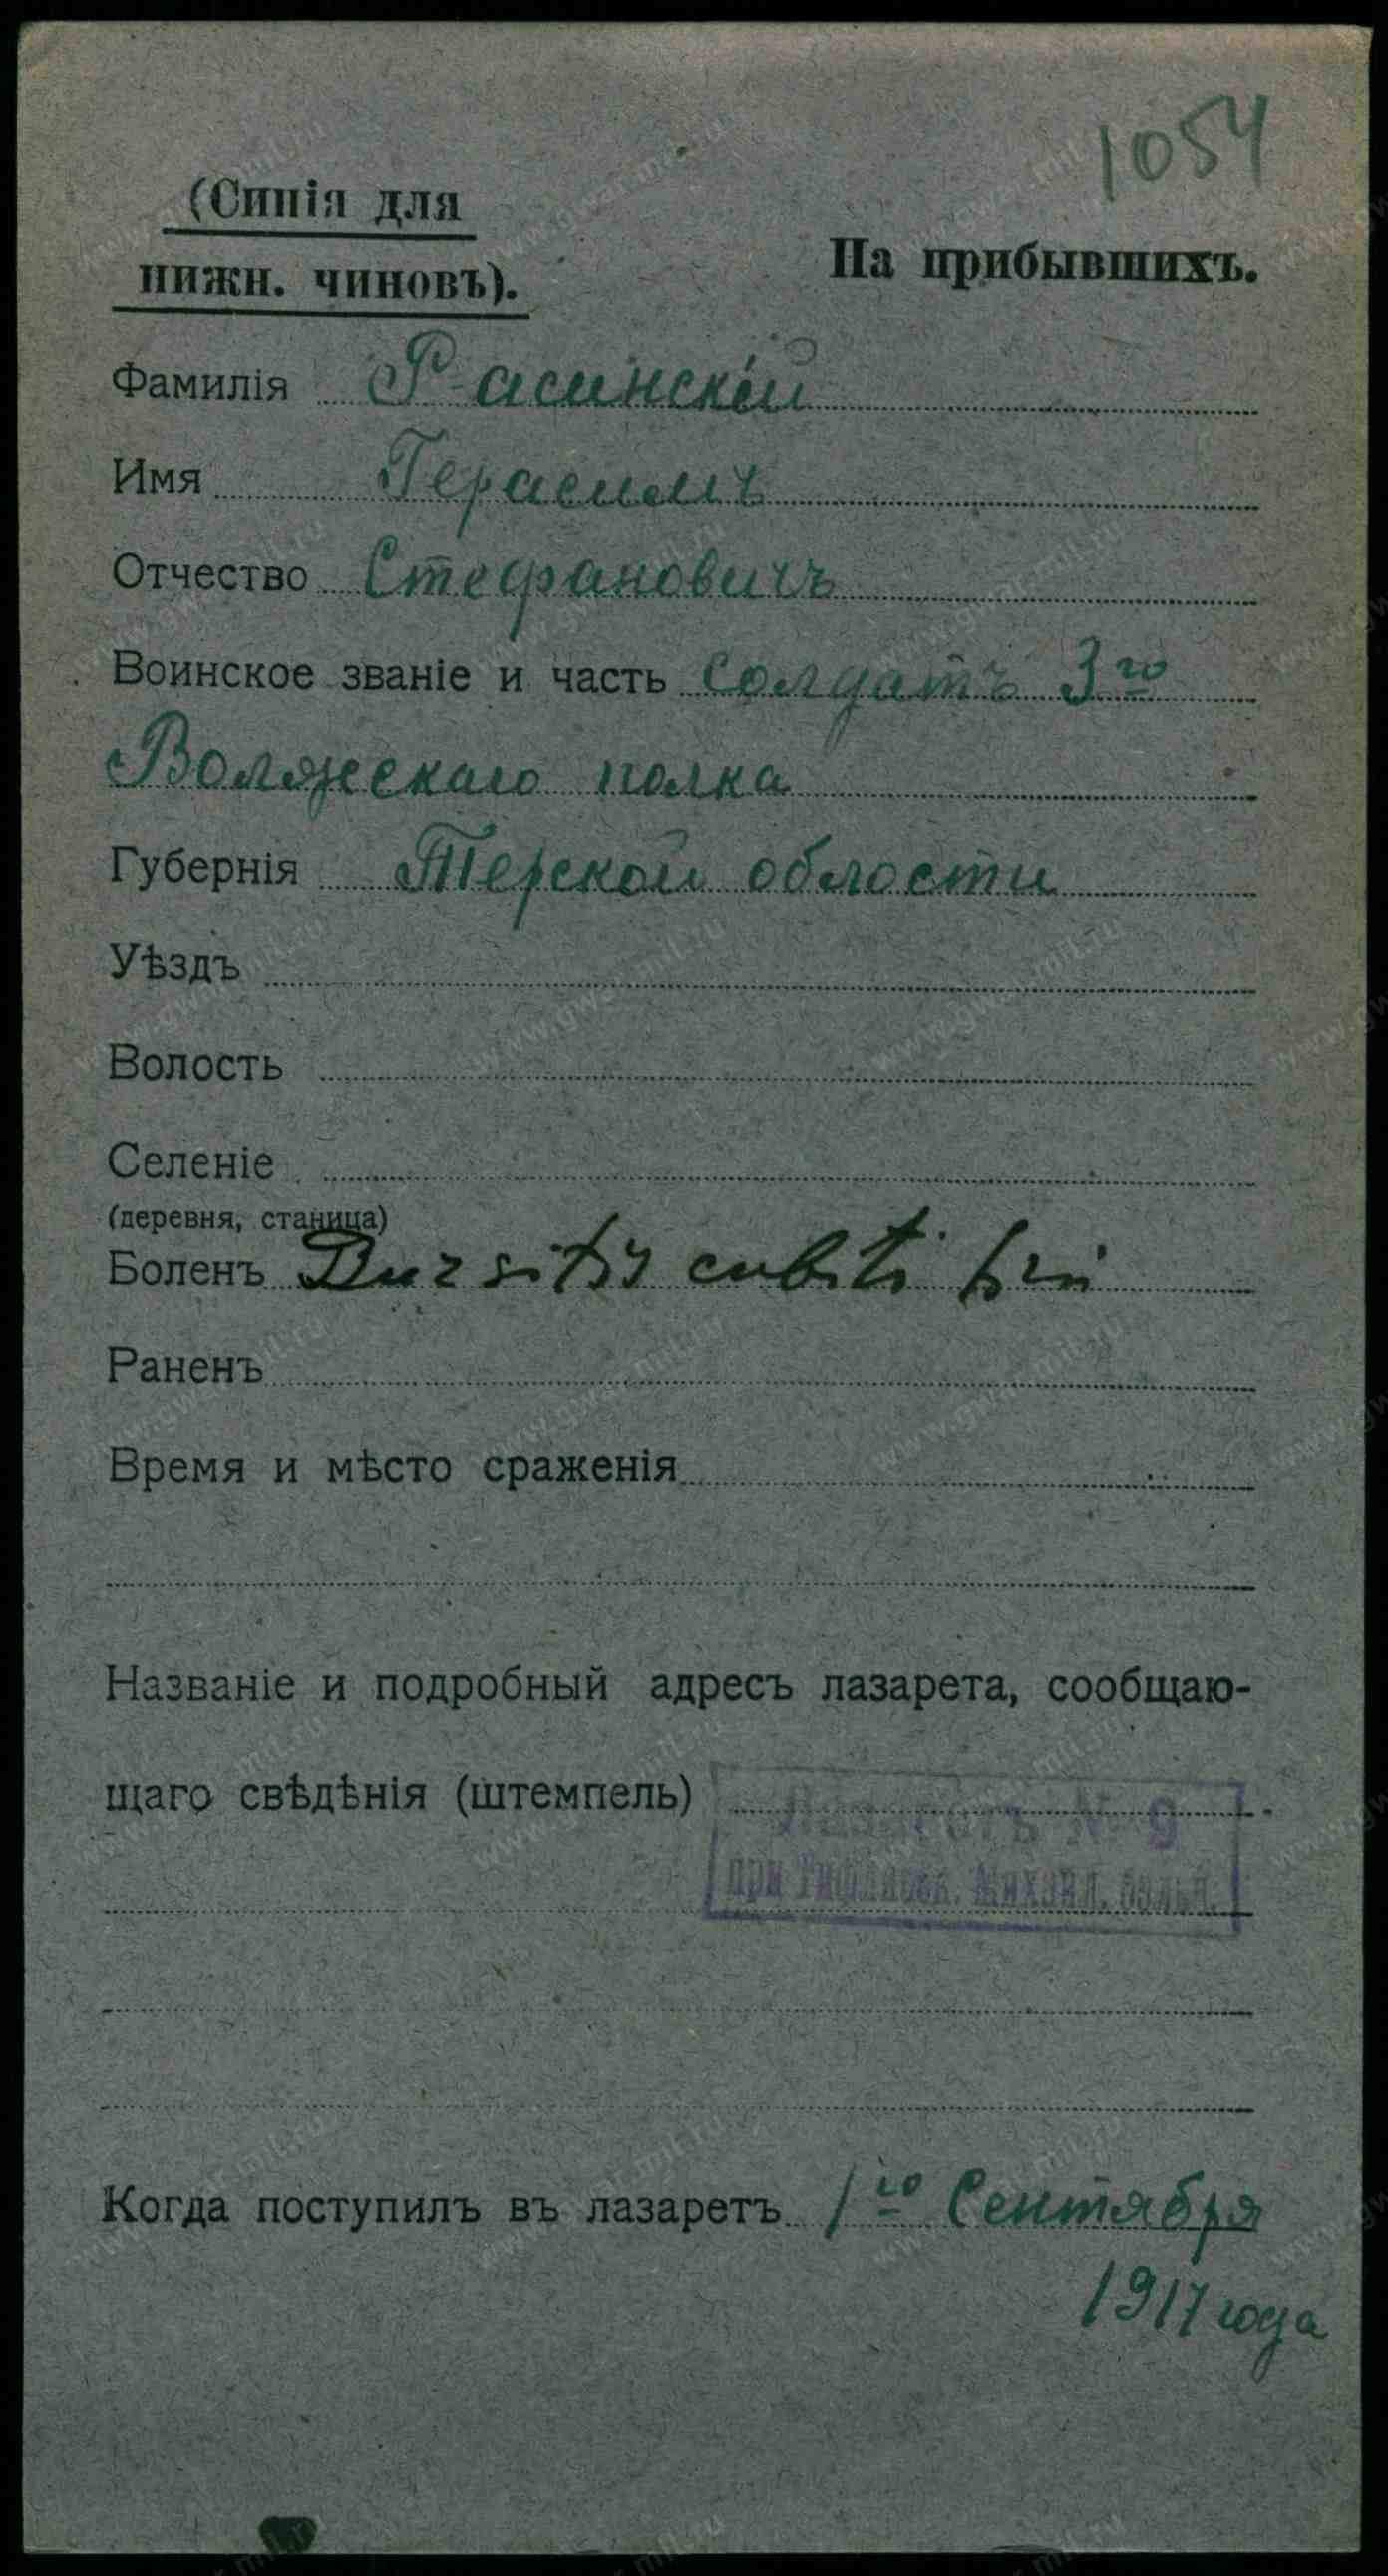 1054
(Синія для
нижн. чиновъ).
На прибывшихъ.
Фамилія Расинскій
Имя Герасимъ
Отчество Стефановичъ
Воинское званіе и часть солдатъ 3го
Волжскаго полка
Губернія Терской области
Уѣздъ
Волость
Селеніе
(деревня, станица)
Боленъ Bursitis cubiti
Раненъ
Время и мѣсто сраженія
Названіе и подробный адресъ лазарета, сообщаю-
щаго свѣдѣнія (штемпель)
Лазаретъ № 9
при Тифлисск. Михайл. больн.
Когда поступилъ въ лазаретъ 1го Сентября
1917 года